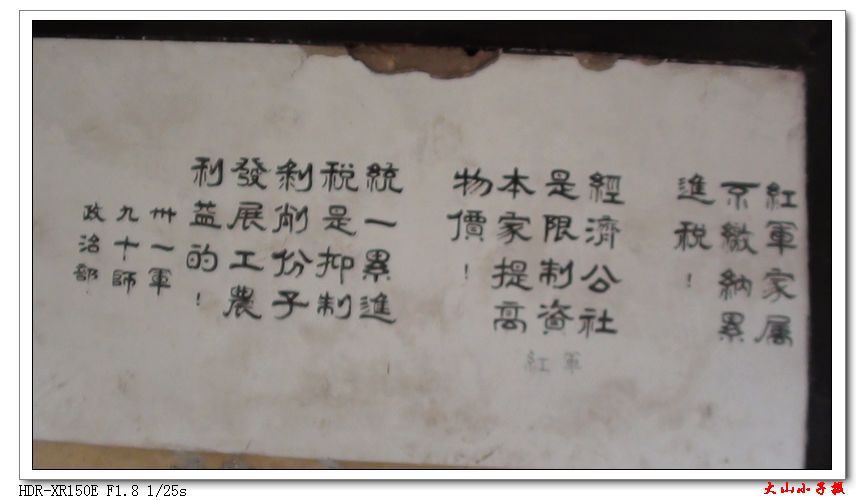 紅軍家属
不繳納累
進税！
經濟公社
是限制資
本家提高
物價！
紅軍
統一累進
税是抑制
剥削份子
發展工農
利益的！
卅一軍
九十師
政治部
HDR-XR150E F1.8 1/25s